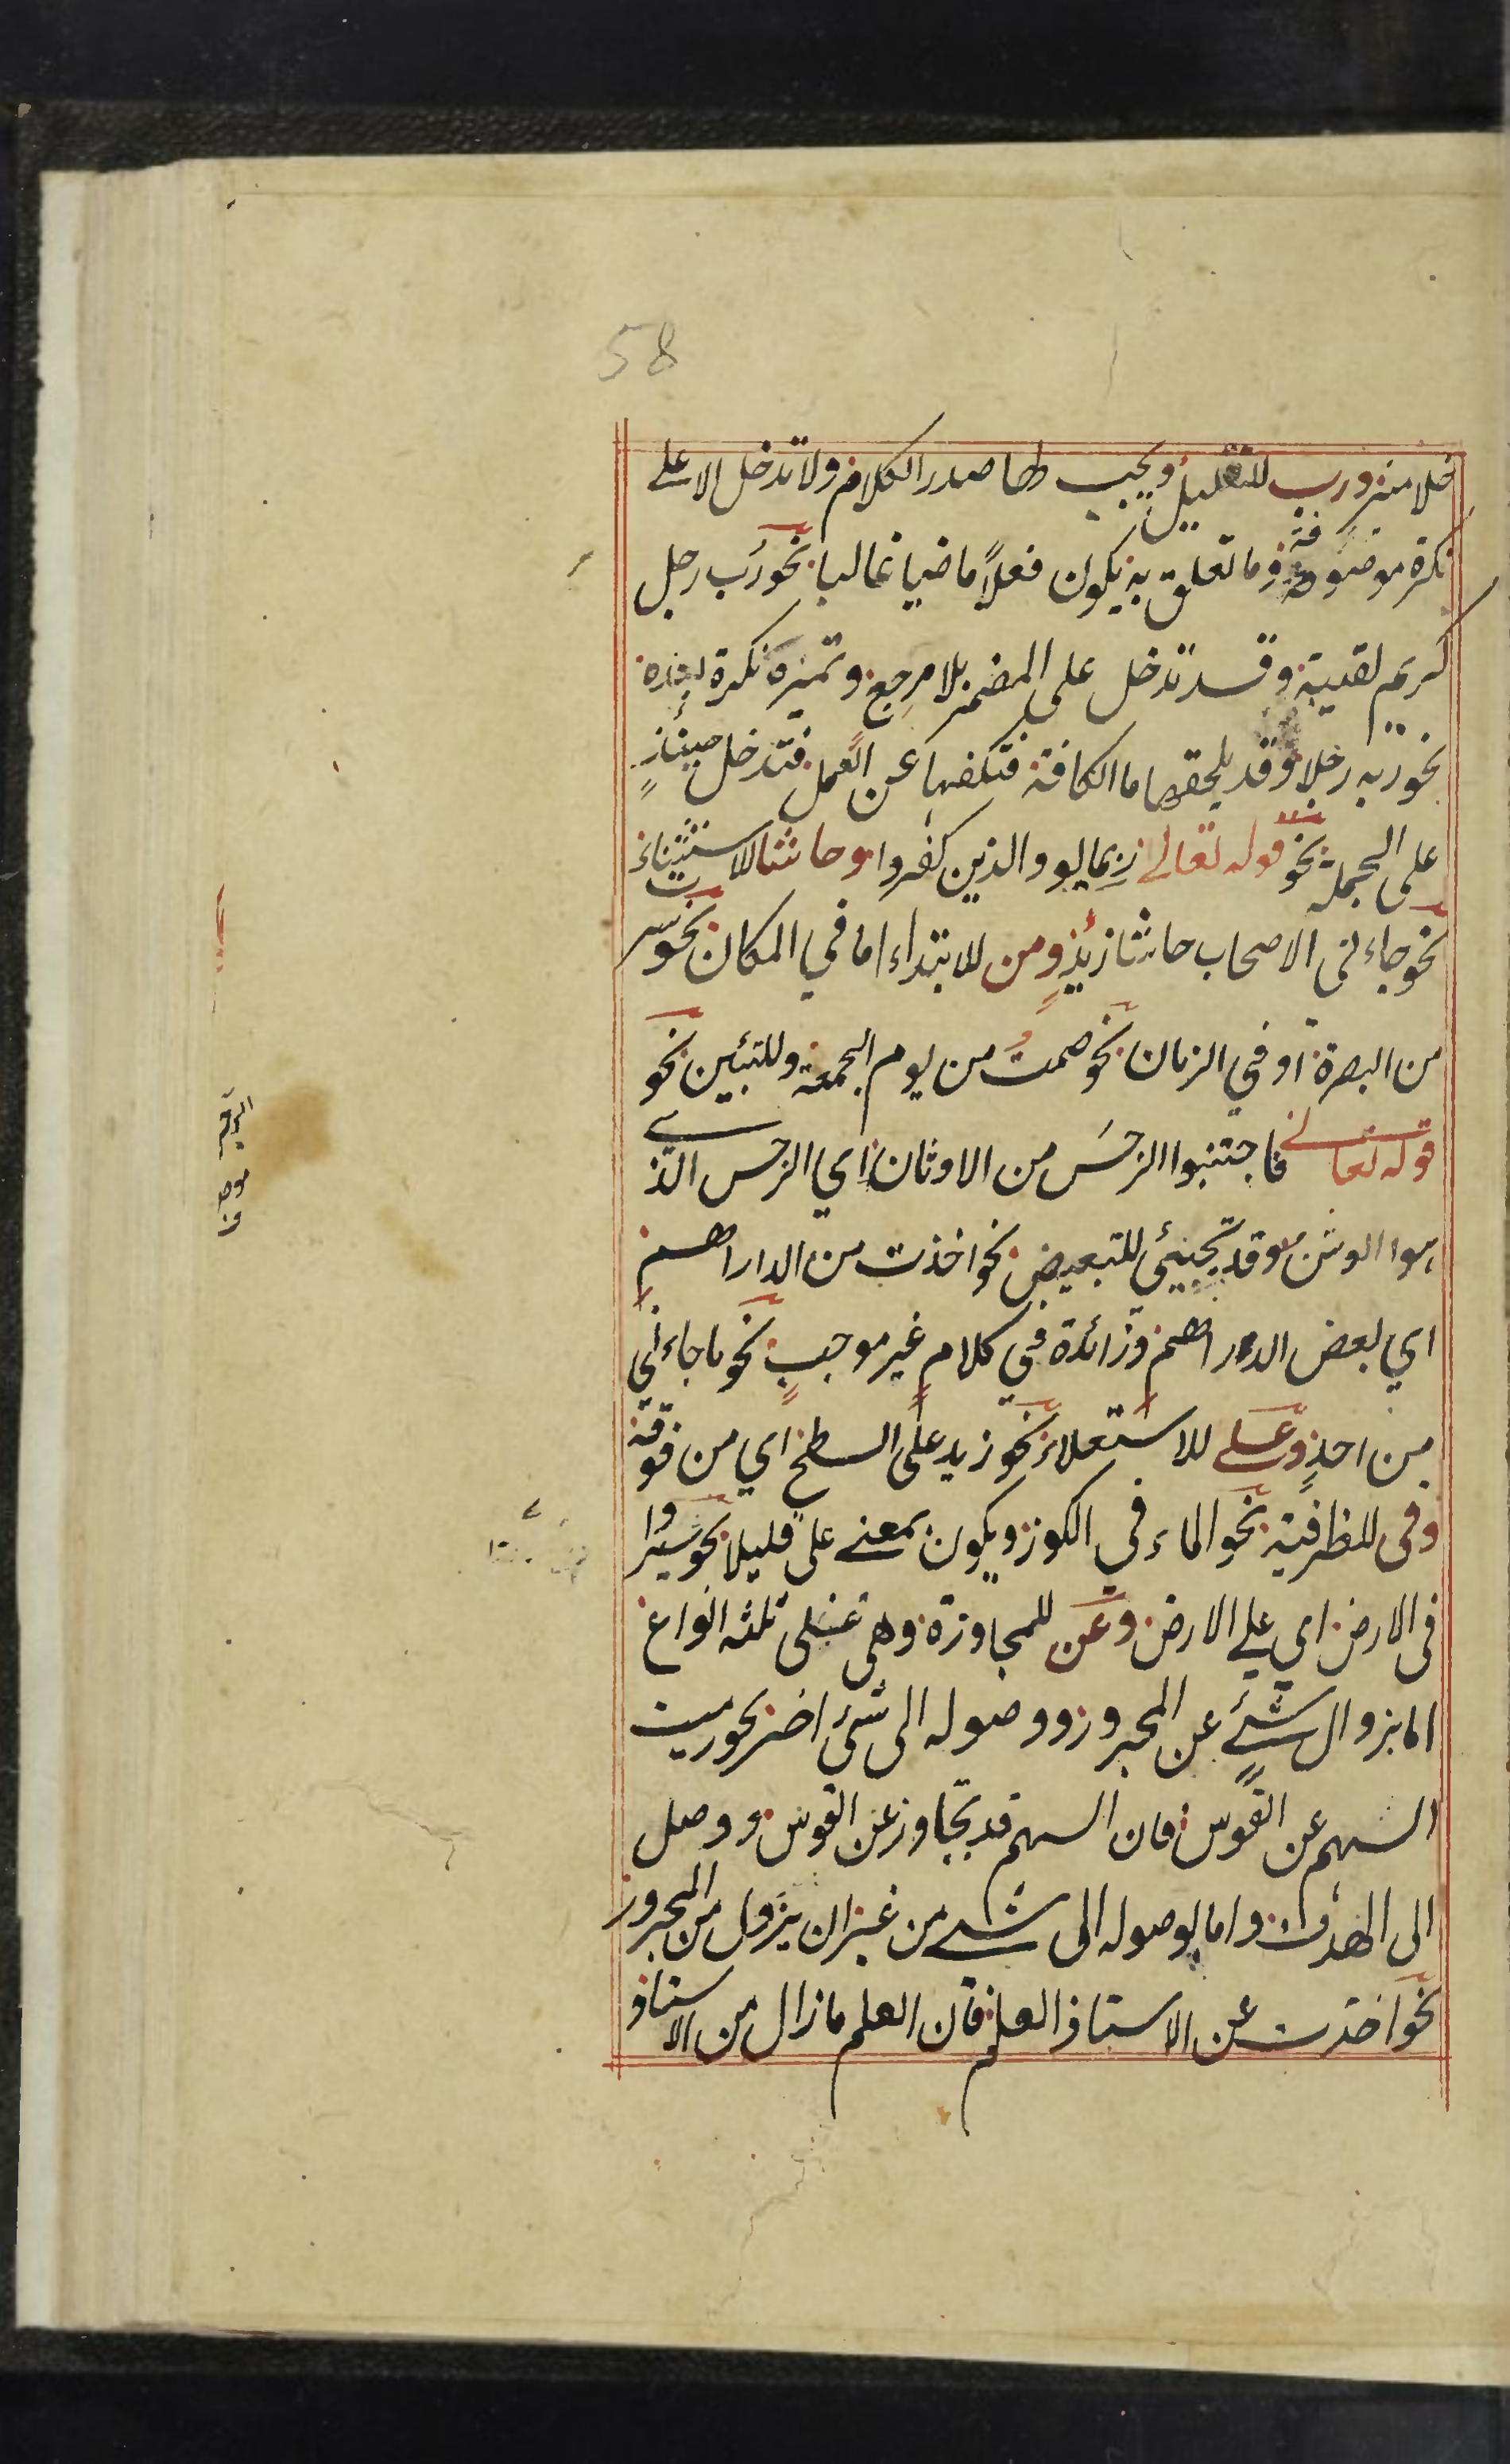 58
خلا منه ورب للتقليل ويجب لها صدر الكلام ولا تدخل الا على
نكرة موصوفة وما تعلق به يكون فعلاً ماضيا غالبا نحو رب رجل
كريم لقيته وقد تدخل على المضمر بلا مرجع وتميزه نكرة بعده
نحو ربه رجلا وقد يلحقها ما الكافة فتكفها عن العمل فتدخل حينئذٍ
على الجملة نحو قوله تعالى ربما يود الذين كفروا وحاشا للاستثناء
نحو جاءنى الاصحاب حاشا زيدٍ ومن للابتداء اما في المكان نحو سر
من البصرة او في الزمان نحو صمت من يوم الجمعة وللتبئين نحو
قوله تعالى فاجتنبوا الرجسَ من الاوثان اي الرجس الذي
هوا الوثن وقد تجيئى للتبعيض نحو اخذت من الدراهم
اي بعض الدراهم وزائدة في كلامٍ غير موجبٍ نحو ما جاءنى
من احدٍ وعلى للاستعلاء نحو زيد على السطح اي من فوقه
وفى للظرفية نحو الماء فى الكوز ويكون بمعنے على قليلا نحو سيروا
فى الارض اي على الارض وعن للمجاوزة وهى على ثلثه انواع
اما بزوال شئے عن المجرور ووصوله الى شئ اخر نحو رميت
السهم عن القوس فان السهم قد تجاوز عن القوس ووصل
الى الهدف واما لوصوله الى شئے من غير ان يزول من المجرور
نحو اخذت عن الاستاذ العلم فان العلم ما زال من الاستاذ